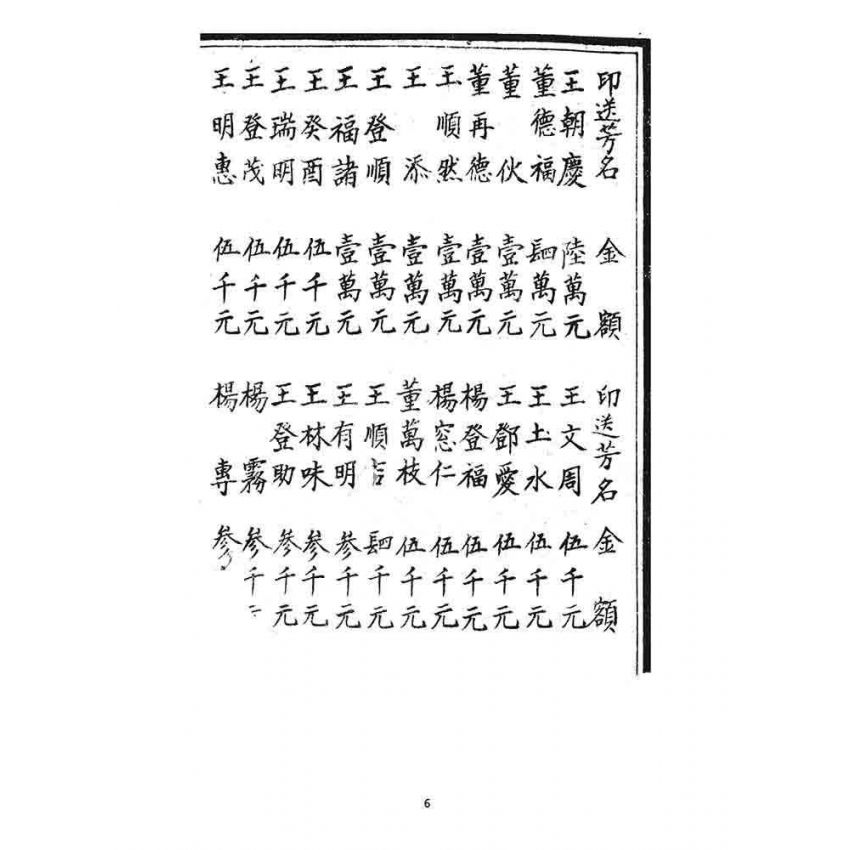 印送芳名 金額
王朝慶 陸萬元
董德福 䦉萬元
董伙 壹萬元
董再德 壹萬元
王順然 壹萬元
王添 壹萬元
王登順 壹萬元
王福諸 壹萬元
王癸酉 伍千元
王瑞明 伍千元
王登茂 伍千元
王明惠 伍千元
印送芳名 金額
王文周 伍千元
王土水 伍千元
王鄧愛 伍千元
楊登福 伍千元
楊窓仁 伍千元
董萬枝 伍千元
王順 䦉千元
王有明 參千元
王林味 參千元
王登助 參千元
楊霧 參千
楊專 參
6